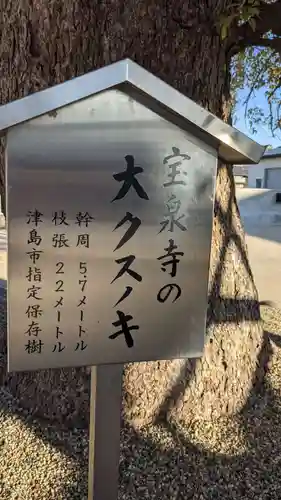 宝泉寺の
大クスノキ
幹周 5.7メートル
枝張 22メートル
津島市指定保存樹